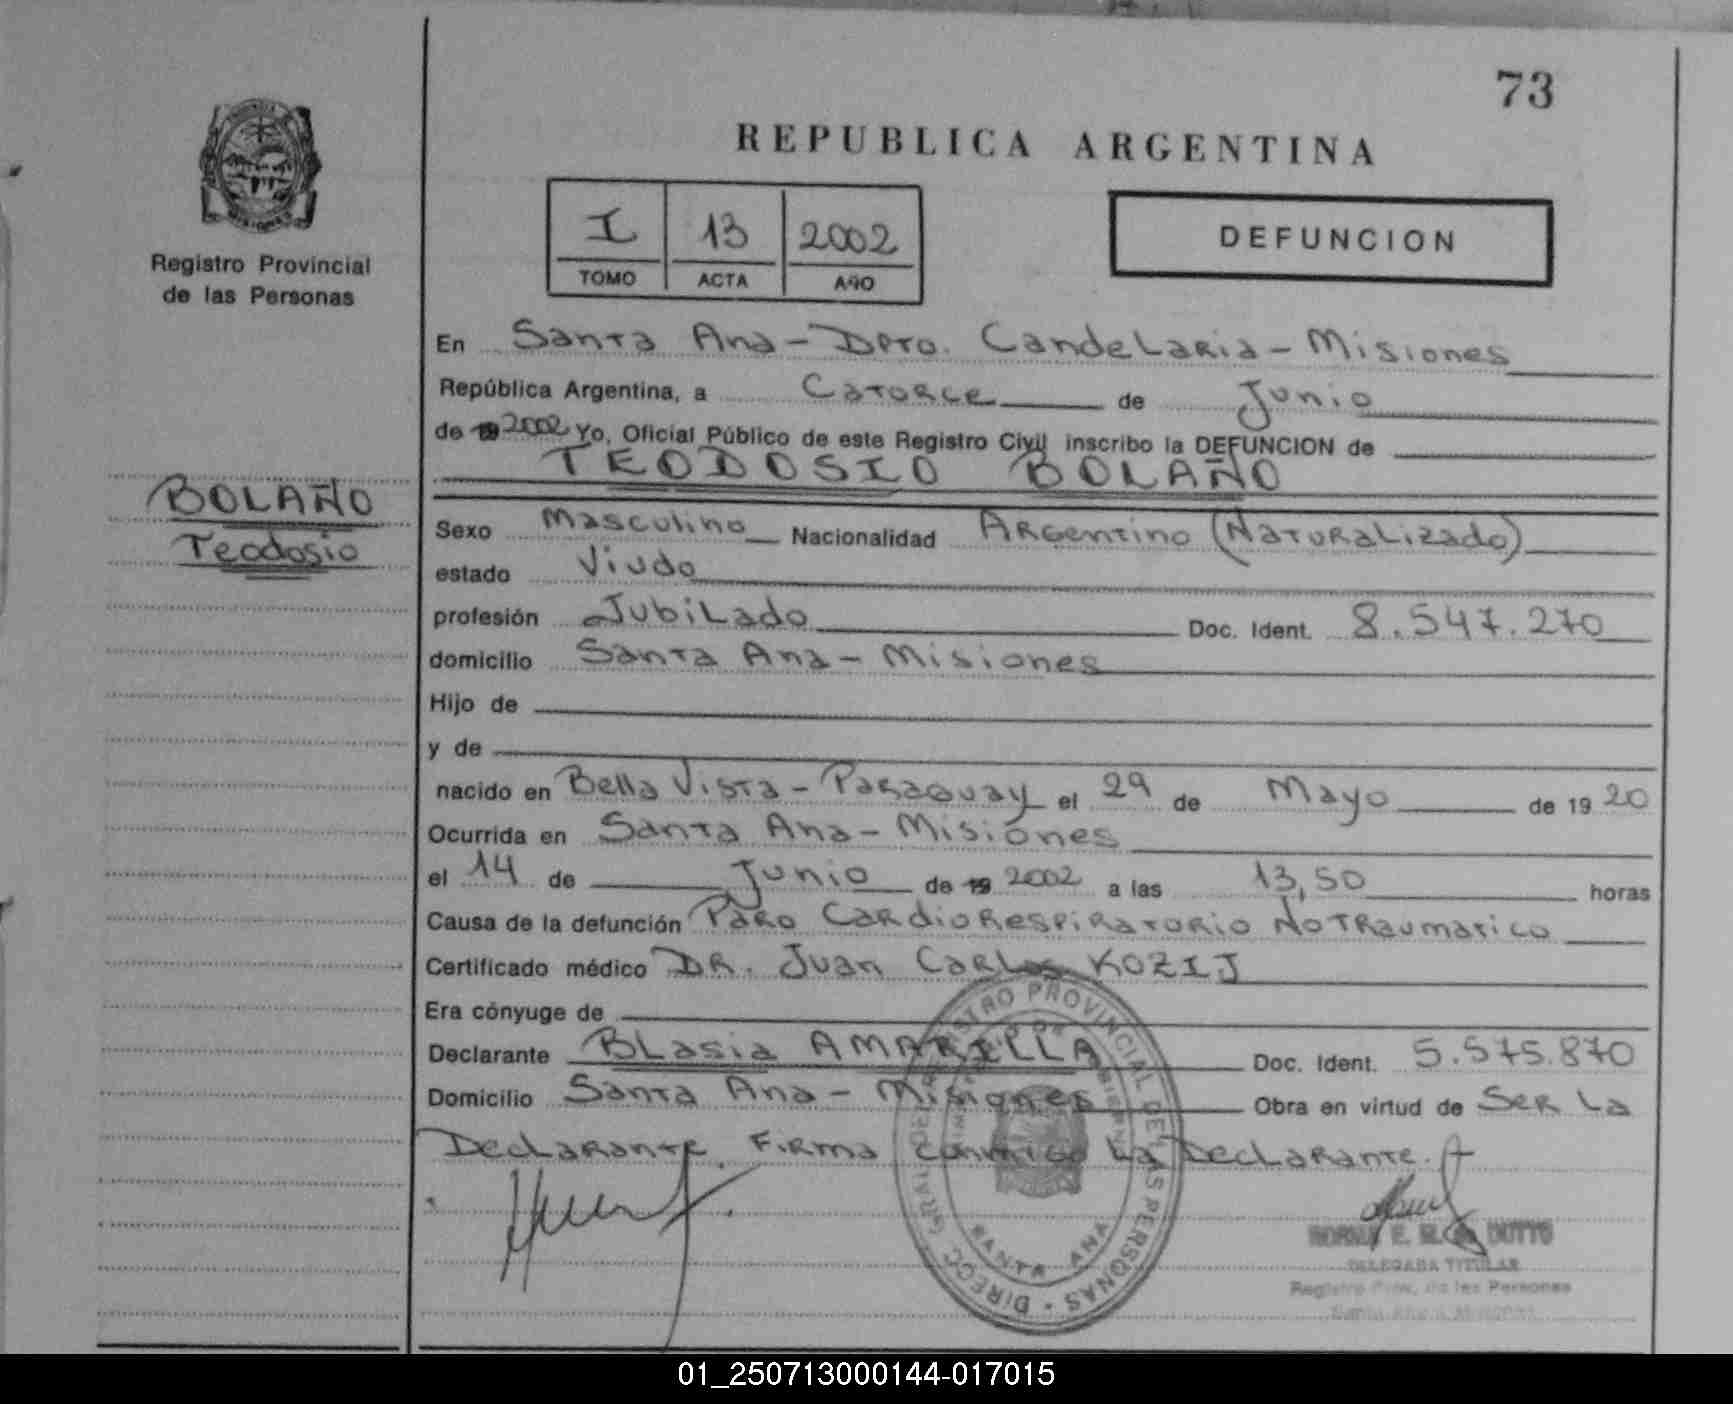 73
REPUBLICA ARGENTINA
Registro Provincial
de las Personas
I 13 2002
TOMO ACTA AÑO
DEFUNCION
En Santa Ana - Dpto. Candelaria - Misiones
República Argentina, a Catorce de Junio
de 19 2002 Yo, Oficial Público de este Registro Civil inscribo la DEFUNCION de
TEODOSIO BOLAÑO
BOLAÑO
Teodosio
Sexo Masculino Nacionalidad Argentino (Naturalizado)
estado Viudo
profesión Jubilado Doc. Ident. 8.547.270
domicilio Santa Ana - Misiones
Hijo de
y de
nacido en Bella Vista - Paraguay el 29 de Mayo de 19 20
Ocurrida en Santa Ana - Misiones
el 14 de Junio de 19 2002 a las 13,50 horas
Causa de la defunción Paro Cardiorespiratorio No Traumatico
Certificado médico DR. Juan Carlos KOZIJ
Era cónyuge de
Declarante Blasia AMARILLA Doc. Ident. 5.575.870
Domicilio Santa Ana - Misiones Obra en virtud de Ser La
Declarante. Firma conmigo La Declarante.
REGISTRO PROVINCIAL DE LAS PERSONAS • DIRECC. GRAL. DEL
SANTA ANA
NORMA E. DUTTO
DELEGADA TITULAR
Registro Prov. de las Personas
01_250713000144-017015